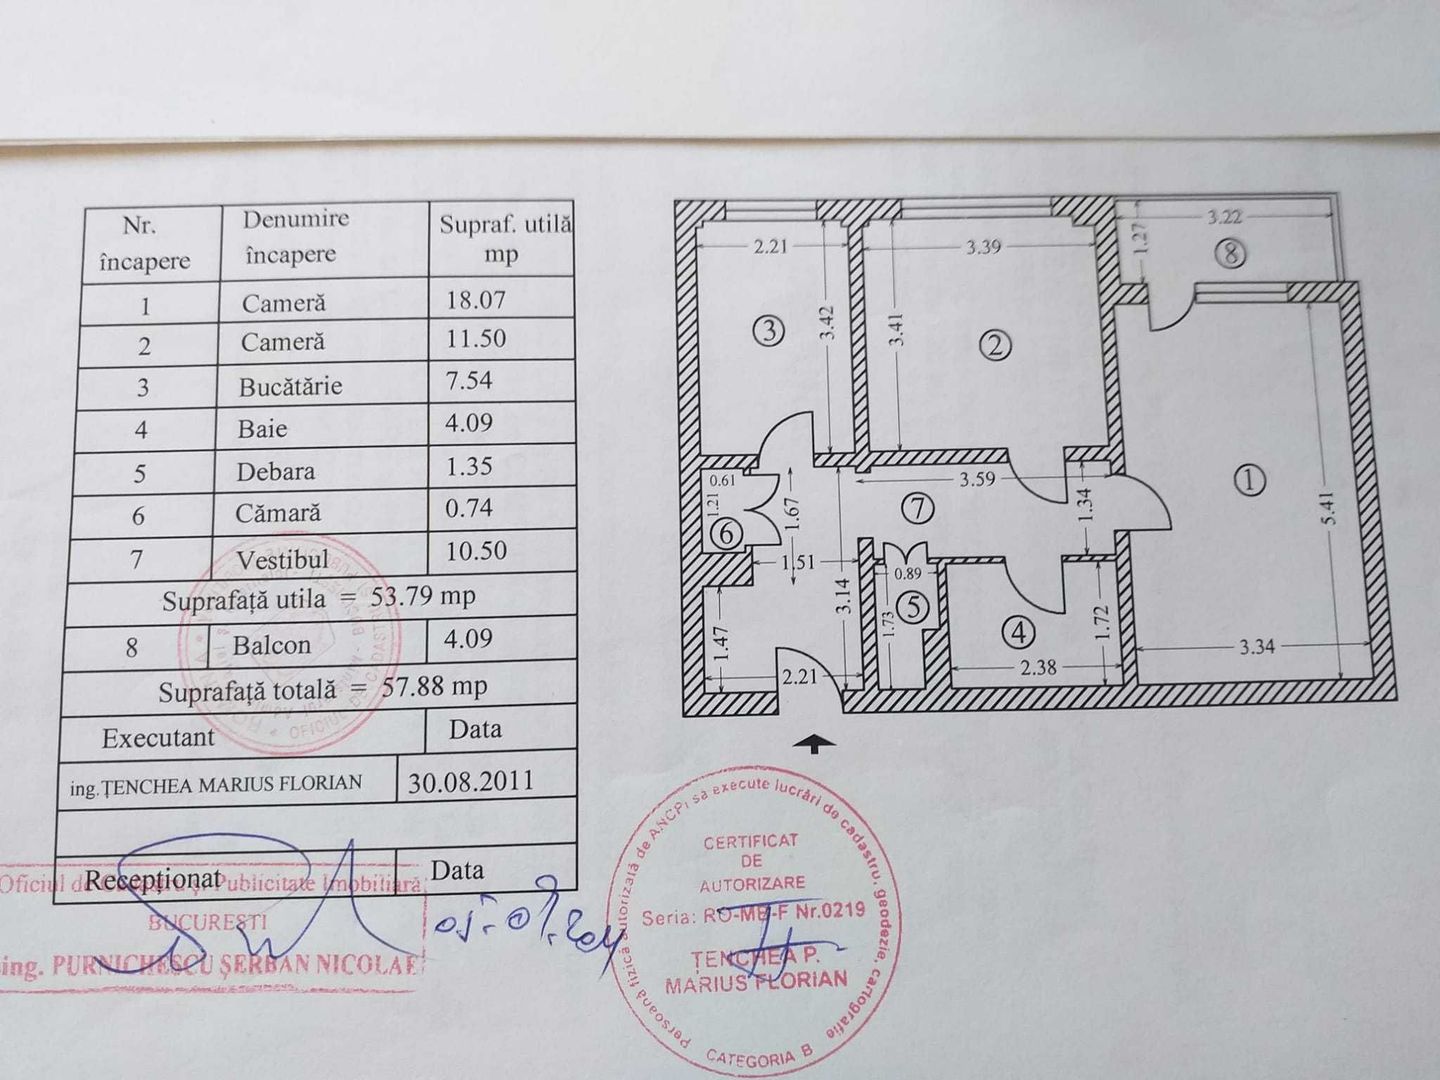 Nr. încapere Denumire încapere Supraf. utilă mp
1 Cameră 18.07
2 Cameră 11.50
3 Bucătărie 7.54
4 Baie 4.09
5 Debara 1.35
6 Cămară 0.74
7 Vestibul 10.50
Suprafață utila = 53.79 mp
8 Balcon 4.09
Suprafață totală = 57.88 mp
Executant Data
ing.ȚENCHEA MARIUS FLORIAN 30.08.2011
Recepționat Data
Oficiul de Publicitate Imobiliară
BUCUREȘTI
ing. PURNICHESCU ȘERBAN NICOLAE
2.21
3.39
3.22
1.27
8
3
3.42
3.41
2
0.61
1.21
6
1.67
3.59
7
1.34
1
5.41
1.51
3.14
0.89
5
1.73
4
1.72
1.47
2.21
2.38
3.34
Persoană fizică autorizată de ANCPI să execute lucrări de cadastru, geodezie, cartografie
CERTIFICAT
DE
AUTORIZARE
Seria: RO-MB-F Nr.0219
ȚENCHEA P.
MARIUS FLORIAN
CATEGORIA B